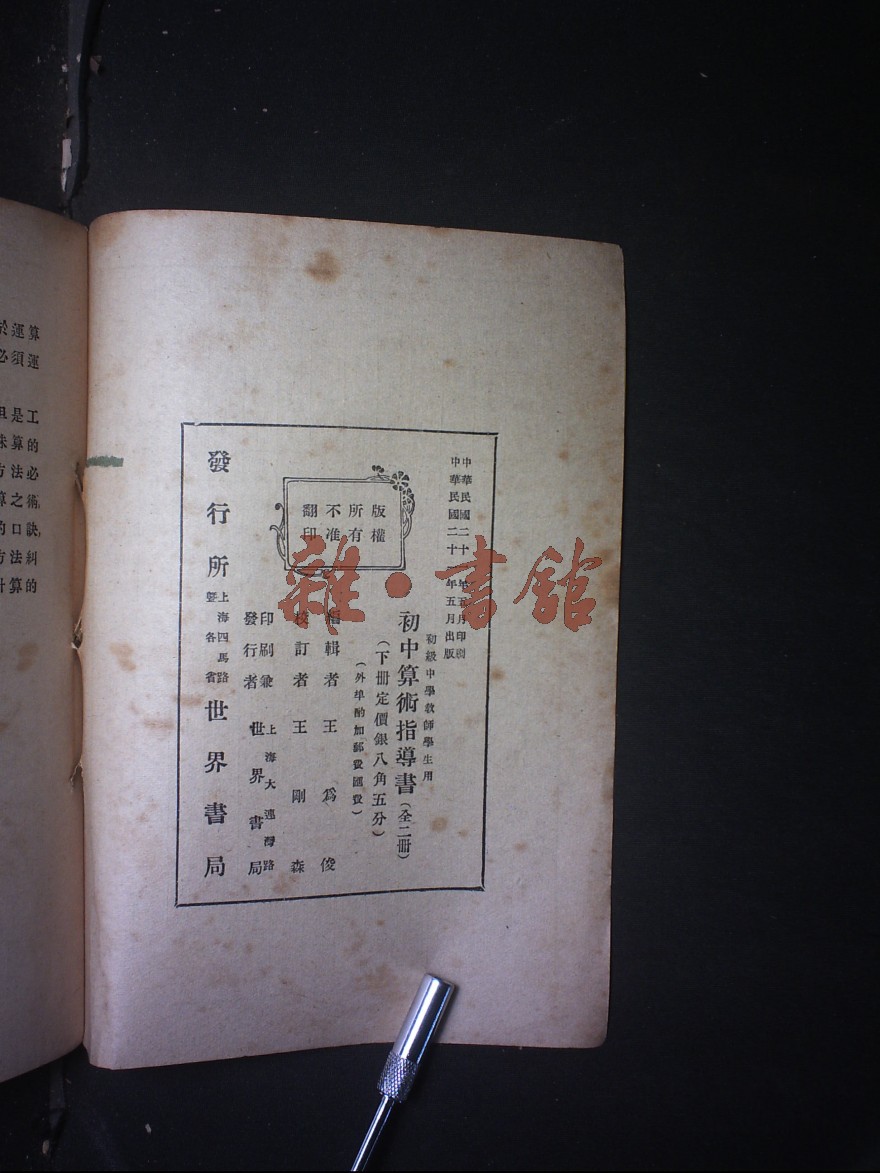 中華民國二十年五月印刷
中華民國二十年五月出版
初級中學教師學生用
初中算術指導書(全二冊)
(下冊定價銀八角五分)
(外埠酌加郵費匯費)
版權
所有
不准
翻印
編輯者 王為俊
校訂者 王剛森
印刷兼發行者 上海大連灣路 世界書局
發行所 上海四馬路暨各省 世界書局
雜·書館
於運算
必須運
且是工
珠算的
方法必
算之術,
的口訣,
方法糾
計算的